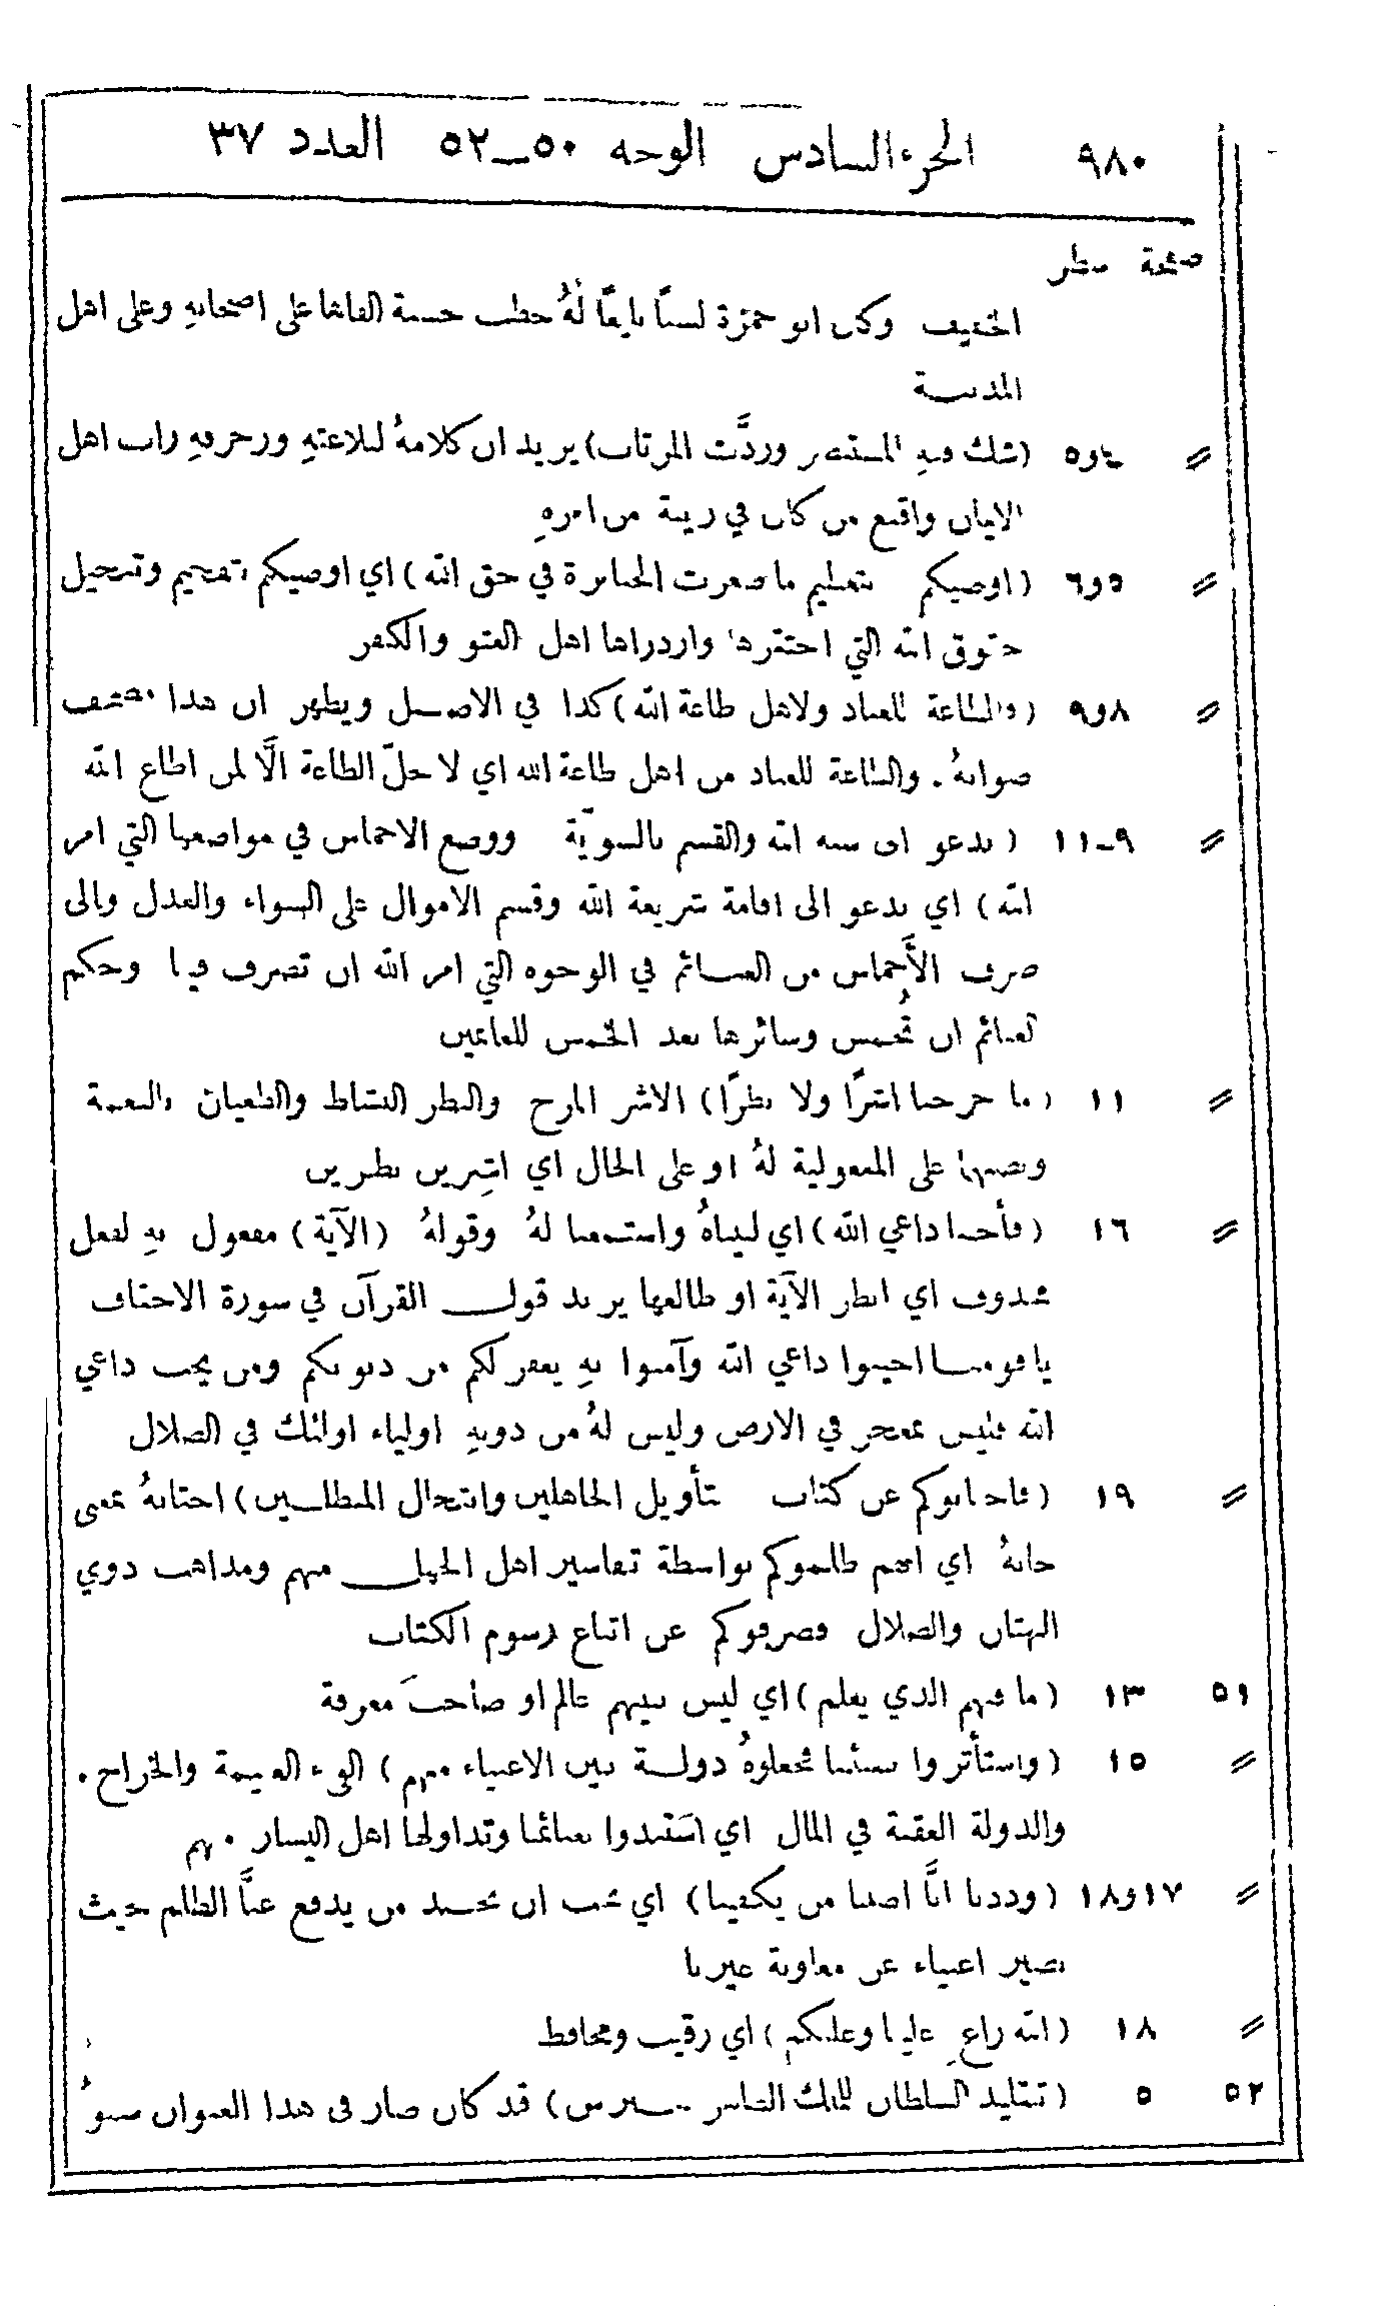 ٩٨٠ الجزء السادس الوجه ٥٠–٥٢ العدد ٣٧
صفحة سطر
الخفيف وكان ابو حمزة لسنًا نابغًا لهُ خطب حسنة القاها على اصحابهِ وعلى اهل
المدينة
〃 ٤و٥ (شك فيهِ المستبصر وردَّت المرتاب) يريد ان كلامهُ لبلاغتهِ وزخرفهِ راب اهل
الايمان واقنع من كان في ريبة من امرهِ
〃 ٥و٦ (اوصيكم بتعظيم ما صغرت الجبابرة في حق الله) اي اوصيكم بتفخيم وتبجيل
حقوق الله التي احتقرها وازدراها اهل العتو والكفر
〃 ٨و٩ (والطاعة للعباد ولاهل طاعة الله) كذا في الاصل ويظهر ان هذا تصحيف
صوابهُ. والطاعة للعباد من اهل طاعة الله اي لا تحلّ الطاعة الَّا لمن اطاع الله
〃 ٩–١١ (ندعو الى سنة الله والقسم بالسويَّة ووضع الاخماس في مواضعها التي امر
الله) اي ندعو الى اقامة شريعة الله وقسم الاموال على السواء والعدل والى
صرف الأَخماس من الغنائم في الوجوه التي امر الله ان تصرف فيها وحكم
الغنائم ان تُخمس وسائرها بعد الخمس للغانمين
〃 ١١ (ما خرجنا اشرًا ولا بطرًا) الاشر المرح والبطر النشاط والطغيان بالنعمة
ونصبهما على المفعولية لهُ او على الحال اي اشِرين بطرين
〃 ١٦ (فأجبنا داعي الله) اي لبيناهُ واستمعنا لهُ وقولهُ (الآية) مفعول بهِ لفعل
محذوف اي انظر الآية او طالعها يريد قول القرآن في سورة الاحقاف
يا قومنا اجيبوا داعي الله وآمنوا بهِ يغفر لكم من ذنوبكم ومن لا يجب داعي
الله فليس بمعجز في الارض وليس لهُ من دونهِ اولياء اولئك في الضلال
〃 ١٩ (فاجانبوكم عن كتاب بتأويل الجاهلين وانتحال المبطلين) اجتابهُ بمعنى
جابهُ اي انهم ظلموكم بواسطة تفاسير اهل الجهل منهم ومذاهب ذوي
البهتان والضلال فصرفوكم عن اتباع رسوم الكتاب
٥١ ١٣ (ما فيهم الذي يعلم) اي ليس بينهم عالم او صاحب معرفة
〃 ١٥ (واستأثروا بفيئنا فجعلوهُ دولة بين الاغنياء منهم) الفيء الغنيمة والخراج.
والدولة العقبة في المال اي استبدوا بغنائمنا وتداولها اهل اليسار منهم
〃 ١٧و١٨ (وددنا انَّا اصبنا من يكفينا) اي نحب ان نجد من يدفع عنَّا الظلم حيث
نصير اغنياء عن معاونة غيرنا
〃 ١٨ (الله راعٍ علينا وعليكم) اي رقيب ومحافظ
٥٢ ٥ (تقليد السلطان للملك الظاهر بيبرس) قد كان صار في هذا العنوان سهوٌ